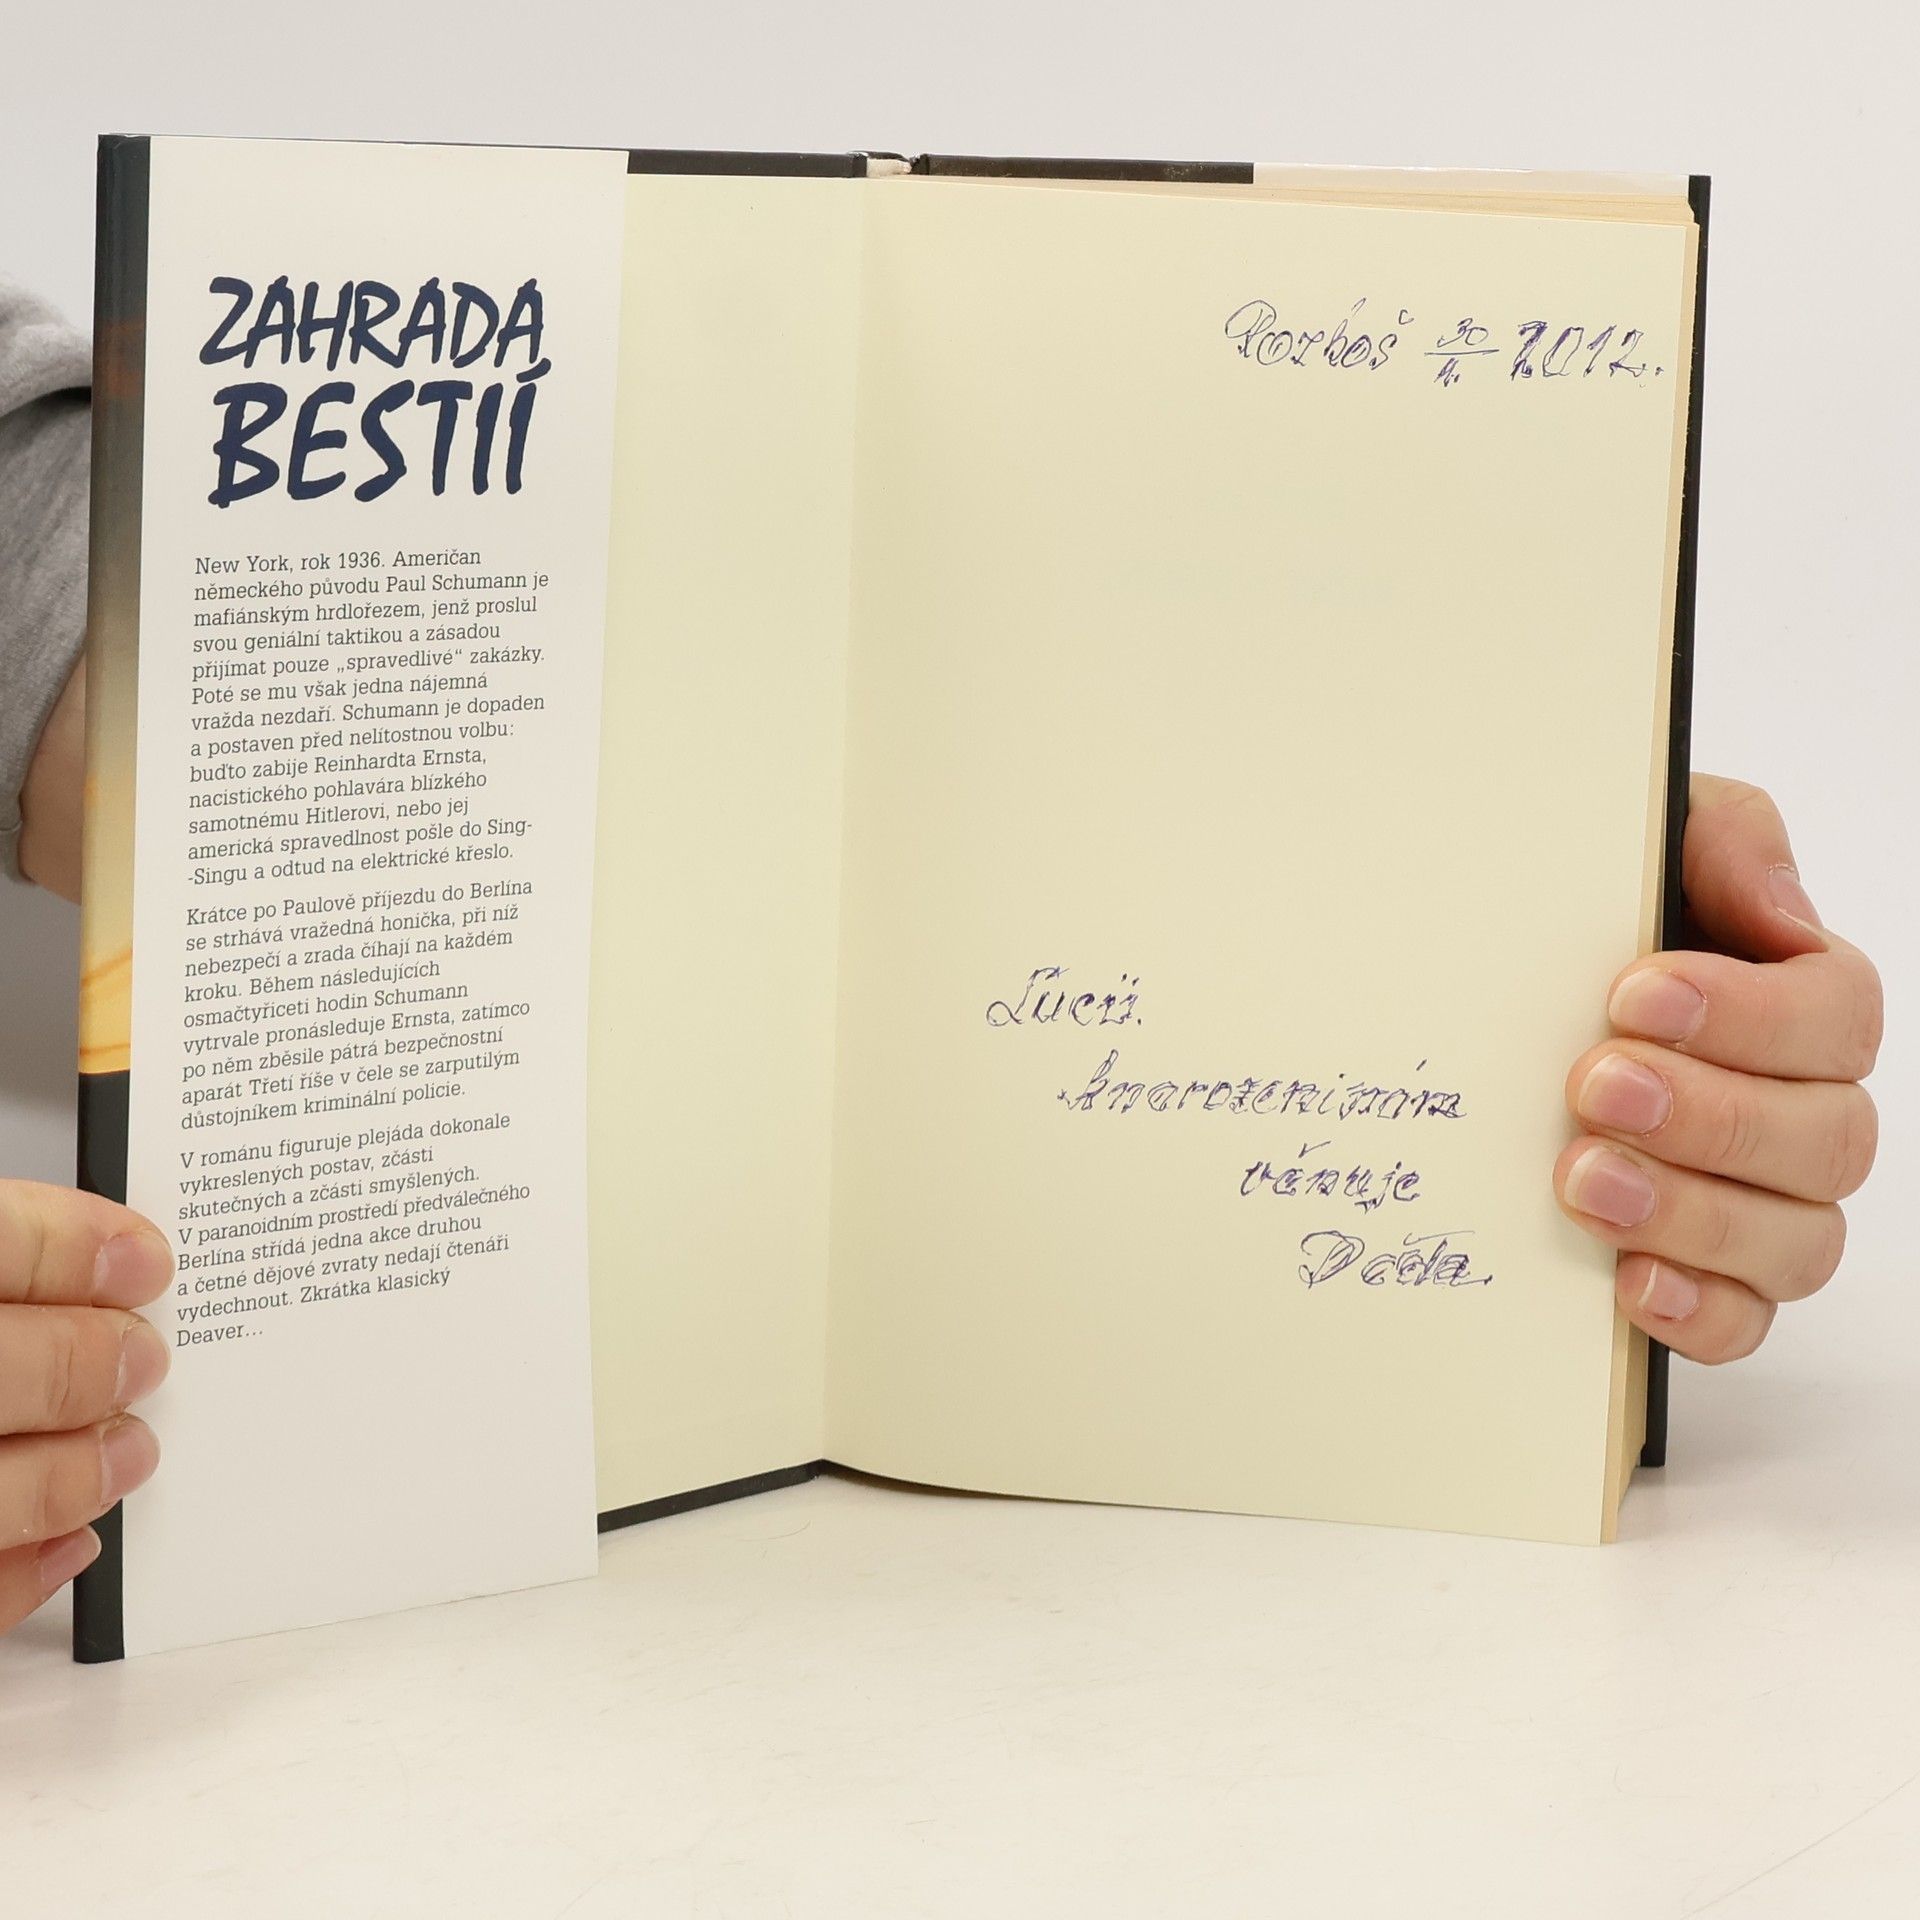 ZAHRADA
BESTIÍ
New York, rok 1936. Američan
německého původu Paul Schumann je
mafiánským hrdlořezem, jenž proslul
svou geniální taktikou a zásadou
přijímat pouze „spravedlivé“ zakázky.
Poté se mu však jedna nájemná
vražda nezdaří. Schumann je dopaden
a postaven před nelítostnou volbu:
buďto zabije Reinhardta Ernsta,
nacistického pohlavára blízkého
samotnému Hitlerovi, nebo jej
americká spravedlnost pošle do Sing-
-Singu a odtud na elektrické křeslo.
Krátce po Paulově příjezdu do Berlína
se strhává vražedná honička, při níž
nebezpečí a zrada číhají na každém
kroku. Během následujících
osmačtyřiceti hodin Schumann
vytrvale pronásleduje Ernsta, zatímco
po něm zběsile pátrá bezpečnostní
aparát Třetí říše v čele se zarputilým
důstojníkem kriminální policie.
V románu figuruje plejáda dokonale
vykreslených postav, zčásti
skutečných a zčásti smyšlených.
V paranoidním prostředí předválečného
Berlína střídá jedna akce druhou
a četné dějové zvraty nedají čtenáři
vydechnout. Zkrátka klasický
Deaver…
Rozkoš 30/4. 2012.
Lucii.
k narozeninám
věnuje